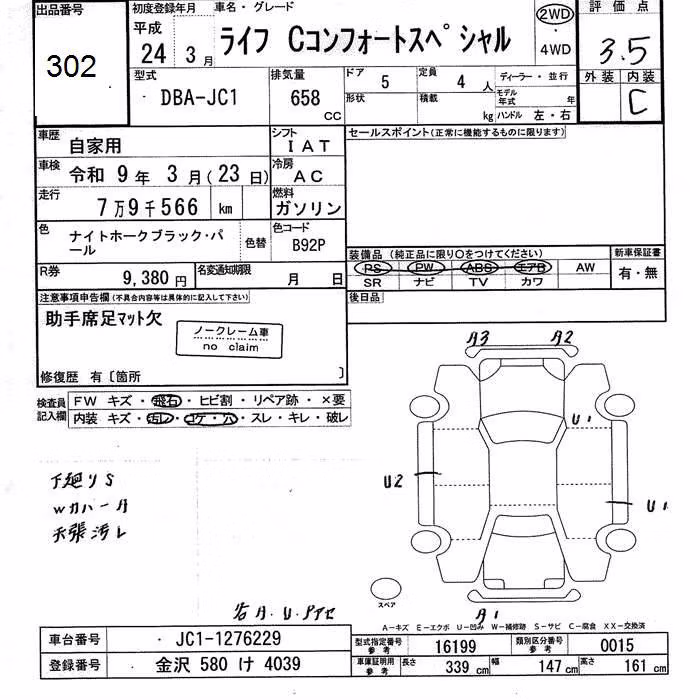 出品番号
302
初度登録年月
平成
24年 3月
車名・グレード
ライフ Cコンフォートスペシャル
2WD
・
4WD
評価点
3.5
外装 内装
C
型式
DBA-JC1
排気量
658
CC
ドア 5
定員 4 人
ディーラー・並行
形状
積載 kg
モデル年式 年
ハンドル 左・右
車歴 自家用
シフト IAT
車検 令和 9年 3月(23日)
冷房 AC
走行 7万9千566 km
燃料 ガソリン
色 ナイトホークブラック・パール
色替
色コード B92P
R券 9,380円
名変通知期限 月 日
セールスポイント(正常に機能するものに限ります)
装備品(純正品に限り○をつけてください)
PS PW ABS エアB AW
SR ナビ TV カワ
新車保証書
有・無
後日品
注意事項申告欄(不具合内容等は具体的に記入して下さい)
助手席足マット欠
ノークレーム車
no claim
修復歴 有〔箇所 〕
検査員記入欄
FW キズ・飛石・ヒビ割・リペア跡・×要
内装 キズ・汚レ・コゲ・穴・スレ・キレ・破レ
下廻りS
WカバーA
天張汚レ
A3 A2
U1
U2
U1
スペア
A1
A-キズ E-エクボ U-凹み W-補修跡 S-サビ C-腐食 XX-交換済
車台番号 JC1-1276229
登録番号 金沢 580 け 4039
型式指定番号 参考 16199
類別区分番号 参考 0015
車庫証明用 参考 長さ 339 cm 幅 147 cm 高さ 161 cm